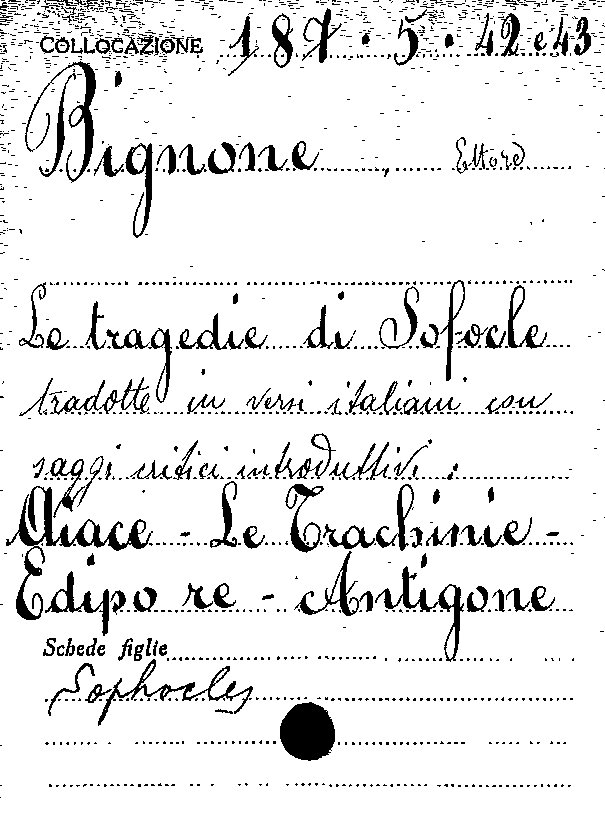 COLLOCAZIONE 187.5.42 e 43
Bignone, Ettore
Le tragedie di Sofocle
tradotte in versi italiani con
saggi critici introduttivi:
Aiace - Le Trachinie -
Edipo re - Antigone
Schede figlie
Sophocles